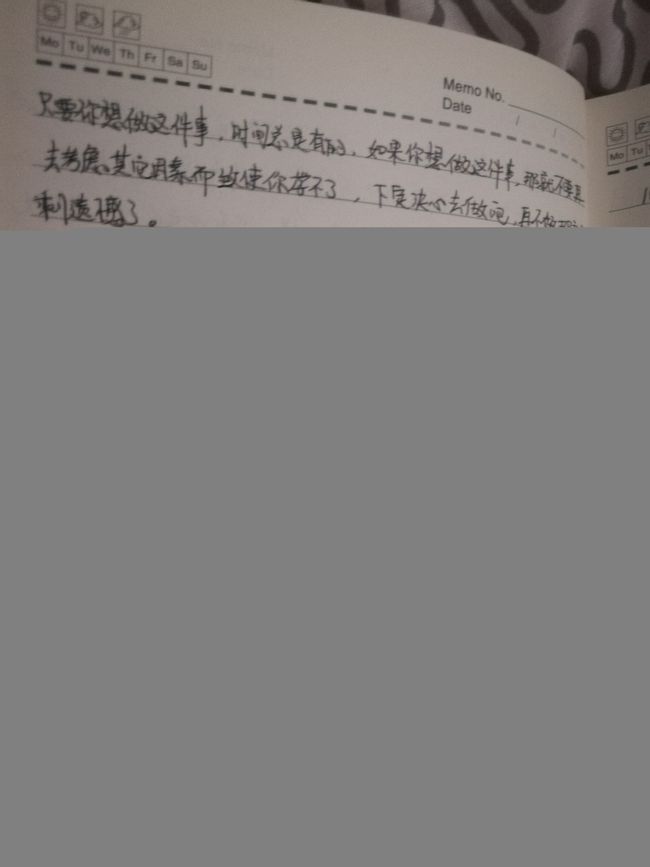 Mo Tu We Th Fr Sa Su
Memo No.
Date / /
只要你想做这件事，时间总是有的，如果你想做这件事，那就不要
去考虑其它因素而致使你苦不了，下定决心去做吧，再不
剩遗憾了。
Mo Tu